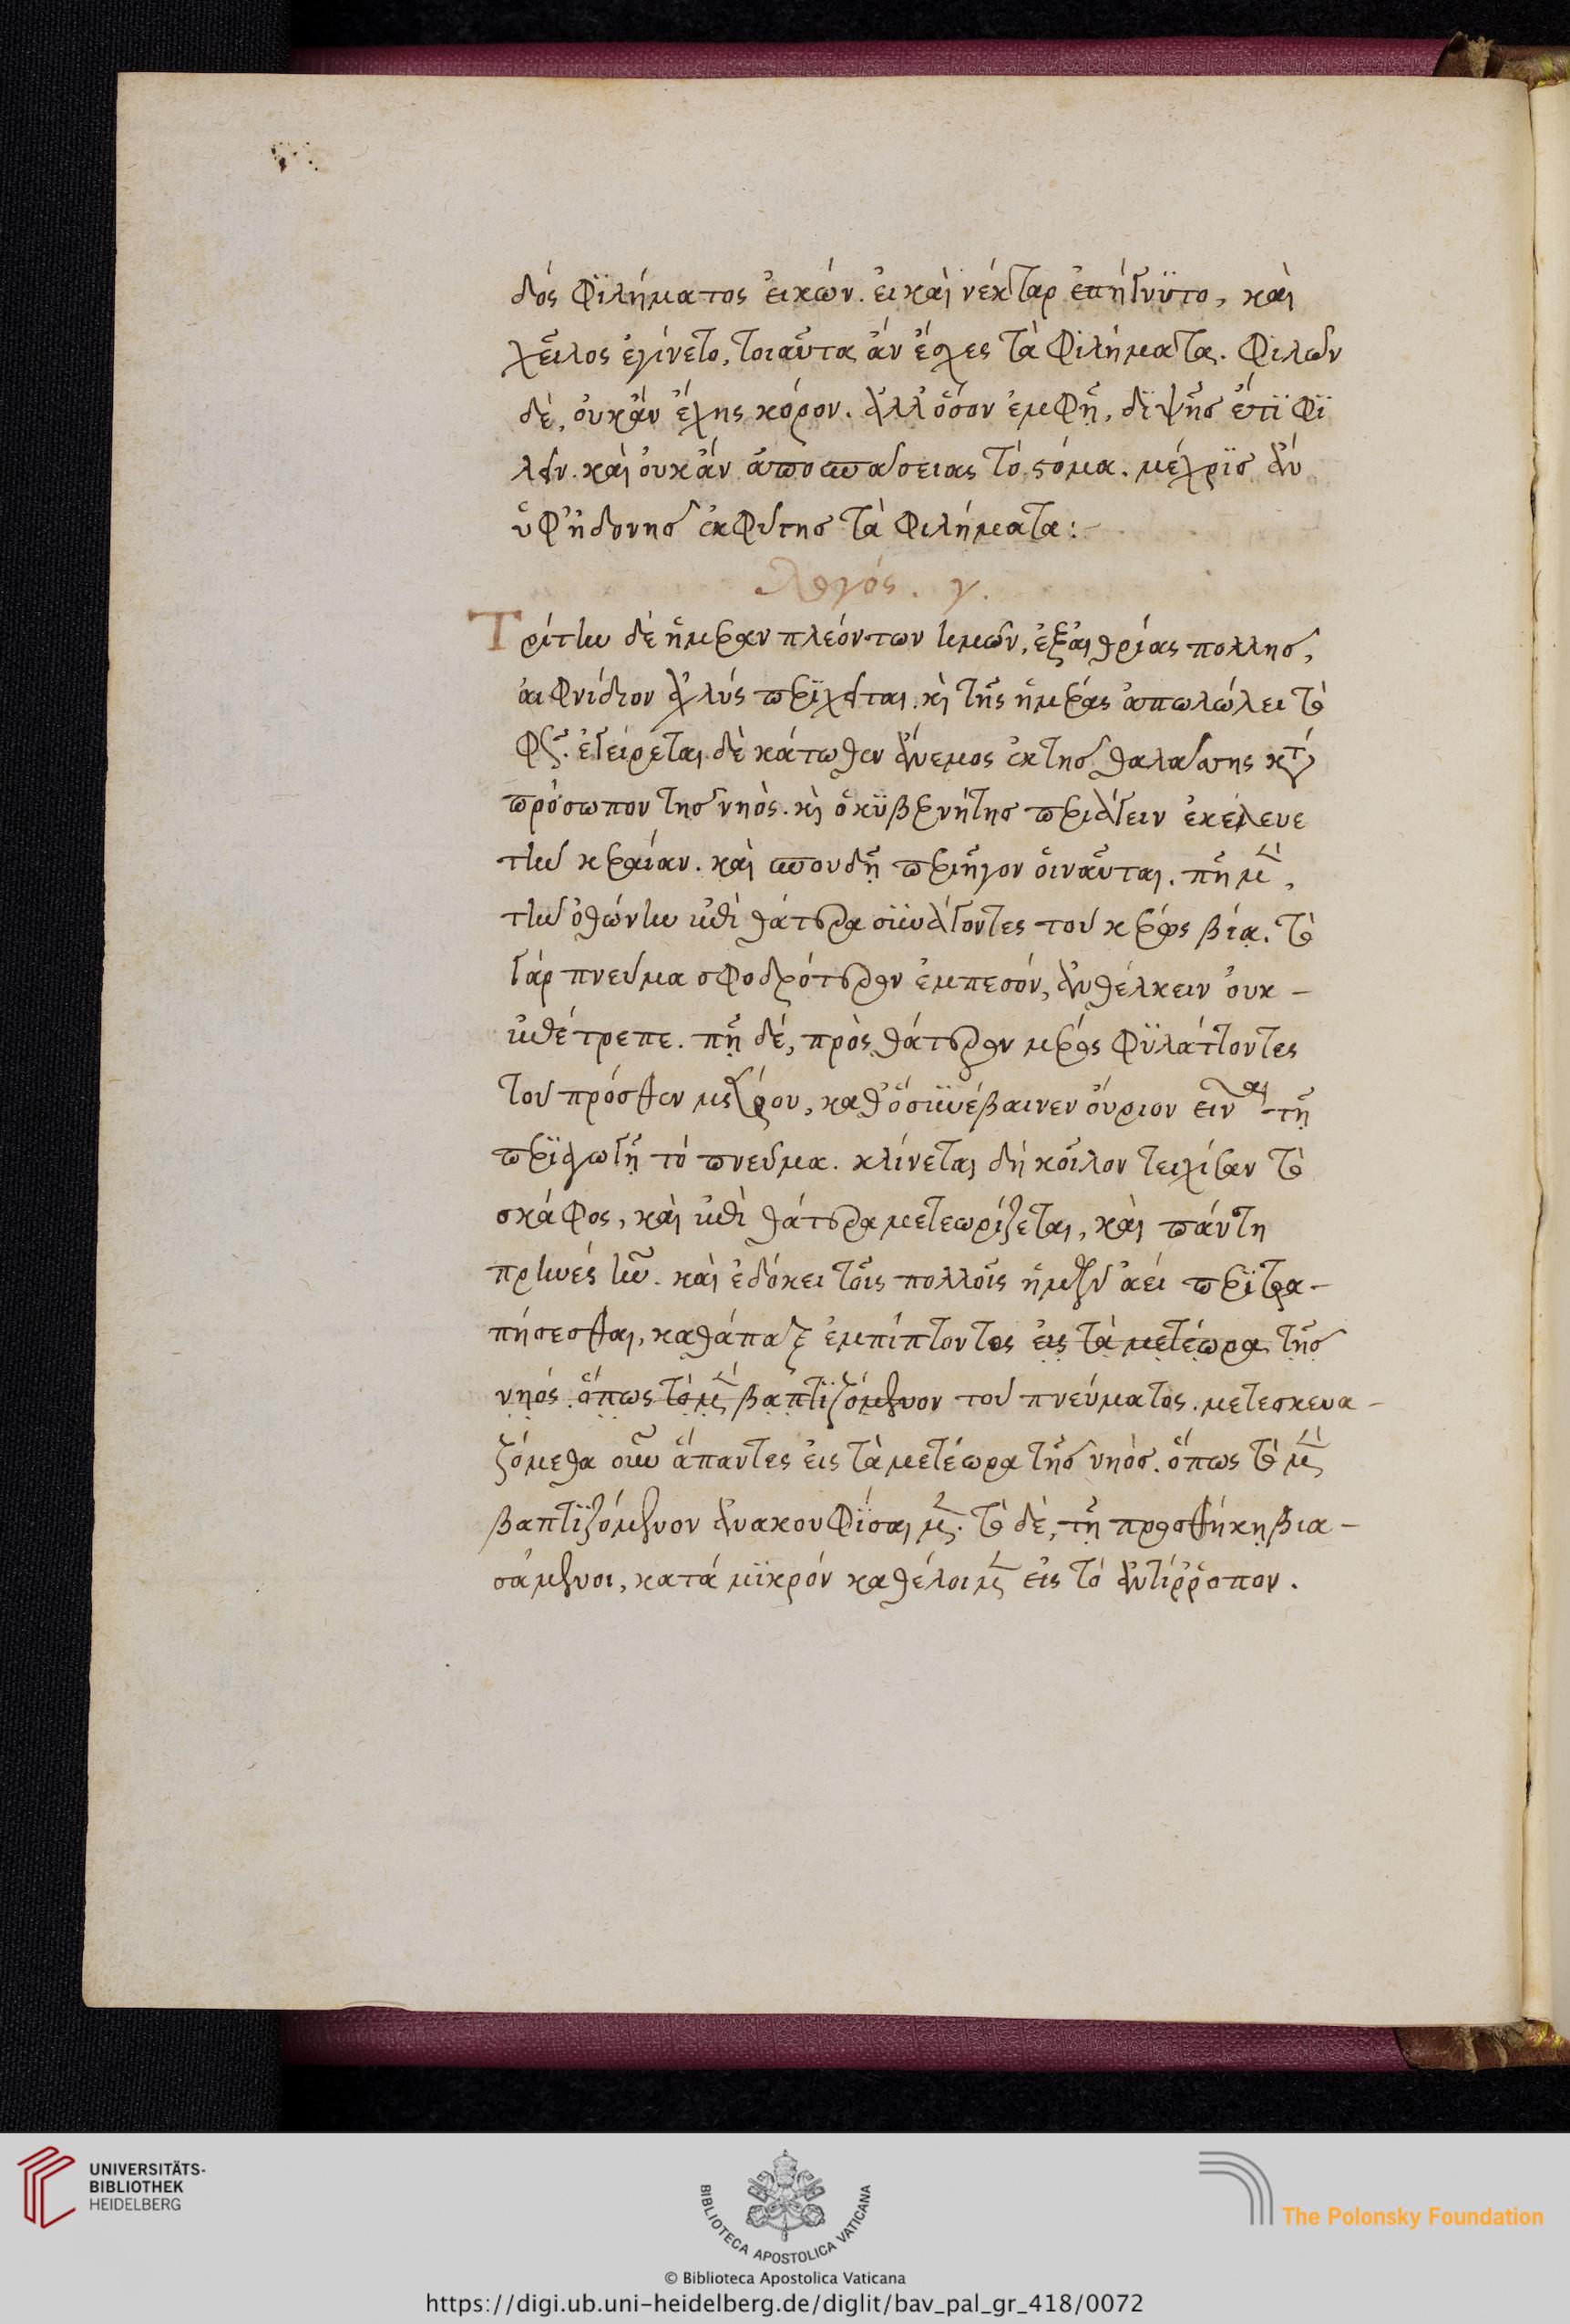 δός φϊλήματος ἐικών. ἐι καὶ νέκταρ ἐπήγνϋτο, καὶ
χεῖλος ἐγίνετο, τοιαῦτα ἄν ἔσχες τὰ φιλήματα. φιλῶν
δὲ, ὀυκ ἄν ἔχης κόρον. ἀλλ ὅσον ἐμφῆ, δϊψῆσ ἔτϊ φϊ
λεῖν. καὶ ὀυκ ἄν ἀποσπάσειας τὸ στόμα. μέχρϊσ ἄν
ὑφ ἡδονῆσ ἐκφύγησ τὰ φιλήματα:
λογός. γ.
Τρίτην δὲ ἡμέραν πλεόντων ἡμῶν, ἐξ αἰθρίας πολλῆσ,
ἀιφνίδιον ἀχλύς περϊχεῖται. κὶ τῆς ἡμέρας ἀπωλώλει τὸ
φῶς. ἐγείρεται δὲ κάτωθεν ἄνεμος ἐκ τῆσ θαλάσσης κτ
πρόσωπον τῆσ νηὸς. κὶ ὁ κϋβερνήτησ περιάγειν ἐκέλευε
τὴν κεραίαν. καὶ σπουδῇ περιῆγον ὁι ναῦται. πῆ μὲν,
τὴν ὀθώνην ἐπὶ θάτερα συνάγοντες τοῦ κέρως βίᾳ. τὸ
γάρ πνεῦμα σφοδρότερον ἐμπεσόν, ἀνθέλκειν ὀυκ –
ἐπέτρεπε. πῆ δέ, πρὸς θάτερον μέρος φϋλάττοντες
τοῦ πρόσθεν μέτρου, καθ ὅ συνέβαινεν ὄυριον εἶναι τῇ
περϊαγωγῇ τὸ πνεῦμα. κλίνεται δὴ κοῖλον τειχίσαν τὸ
σκάφος, καὶ ἐπὶ θάτερα μετεωρίζεται, καὶ πάντη
πρηνές ἦν. καὶ ἐδόκει τοῖς πολλοῖς ἡμῶν ἀεὶ περϊτρα–
πήσεσθαι, καθάπαξ ἐμπίπτοντος εἰς τὰ μετέωρα τῆσ
νηός. ὅπως τὸ μὲν βαπτϊζόμενον τοῦ πνεύματος. μετεσκευα–
ζόμεθα οὖν ἅπαντες ἐις τὰ μετέωρα τῆσ νηὸσ. ὅπως τὸ μὲν
βαπτϊζόμενον ἀνακουφϊσαιμεν. τὸ δὲ, τῇ προσθήκῃ βια–
σάμενοι, κατά μϊκρόν καθέλοιμεν εἰς τὸ ἀντίῤῥοπον.
UNIVERSITÄTS-
BIBLIOTHEK
HEIDELBERG
BIBLIOTECA APOSTOLICA VATICANA
The Polonsky Foundation
© Biblioteca Apostolica Vaticana
https://digi.ub.uni-heidelberg.de/diglit/bav_pal_gr_418/0072